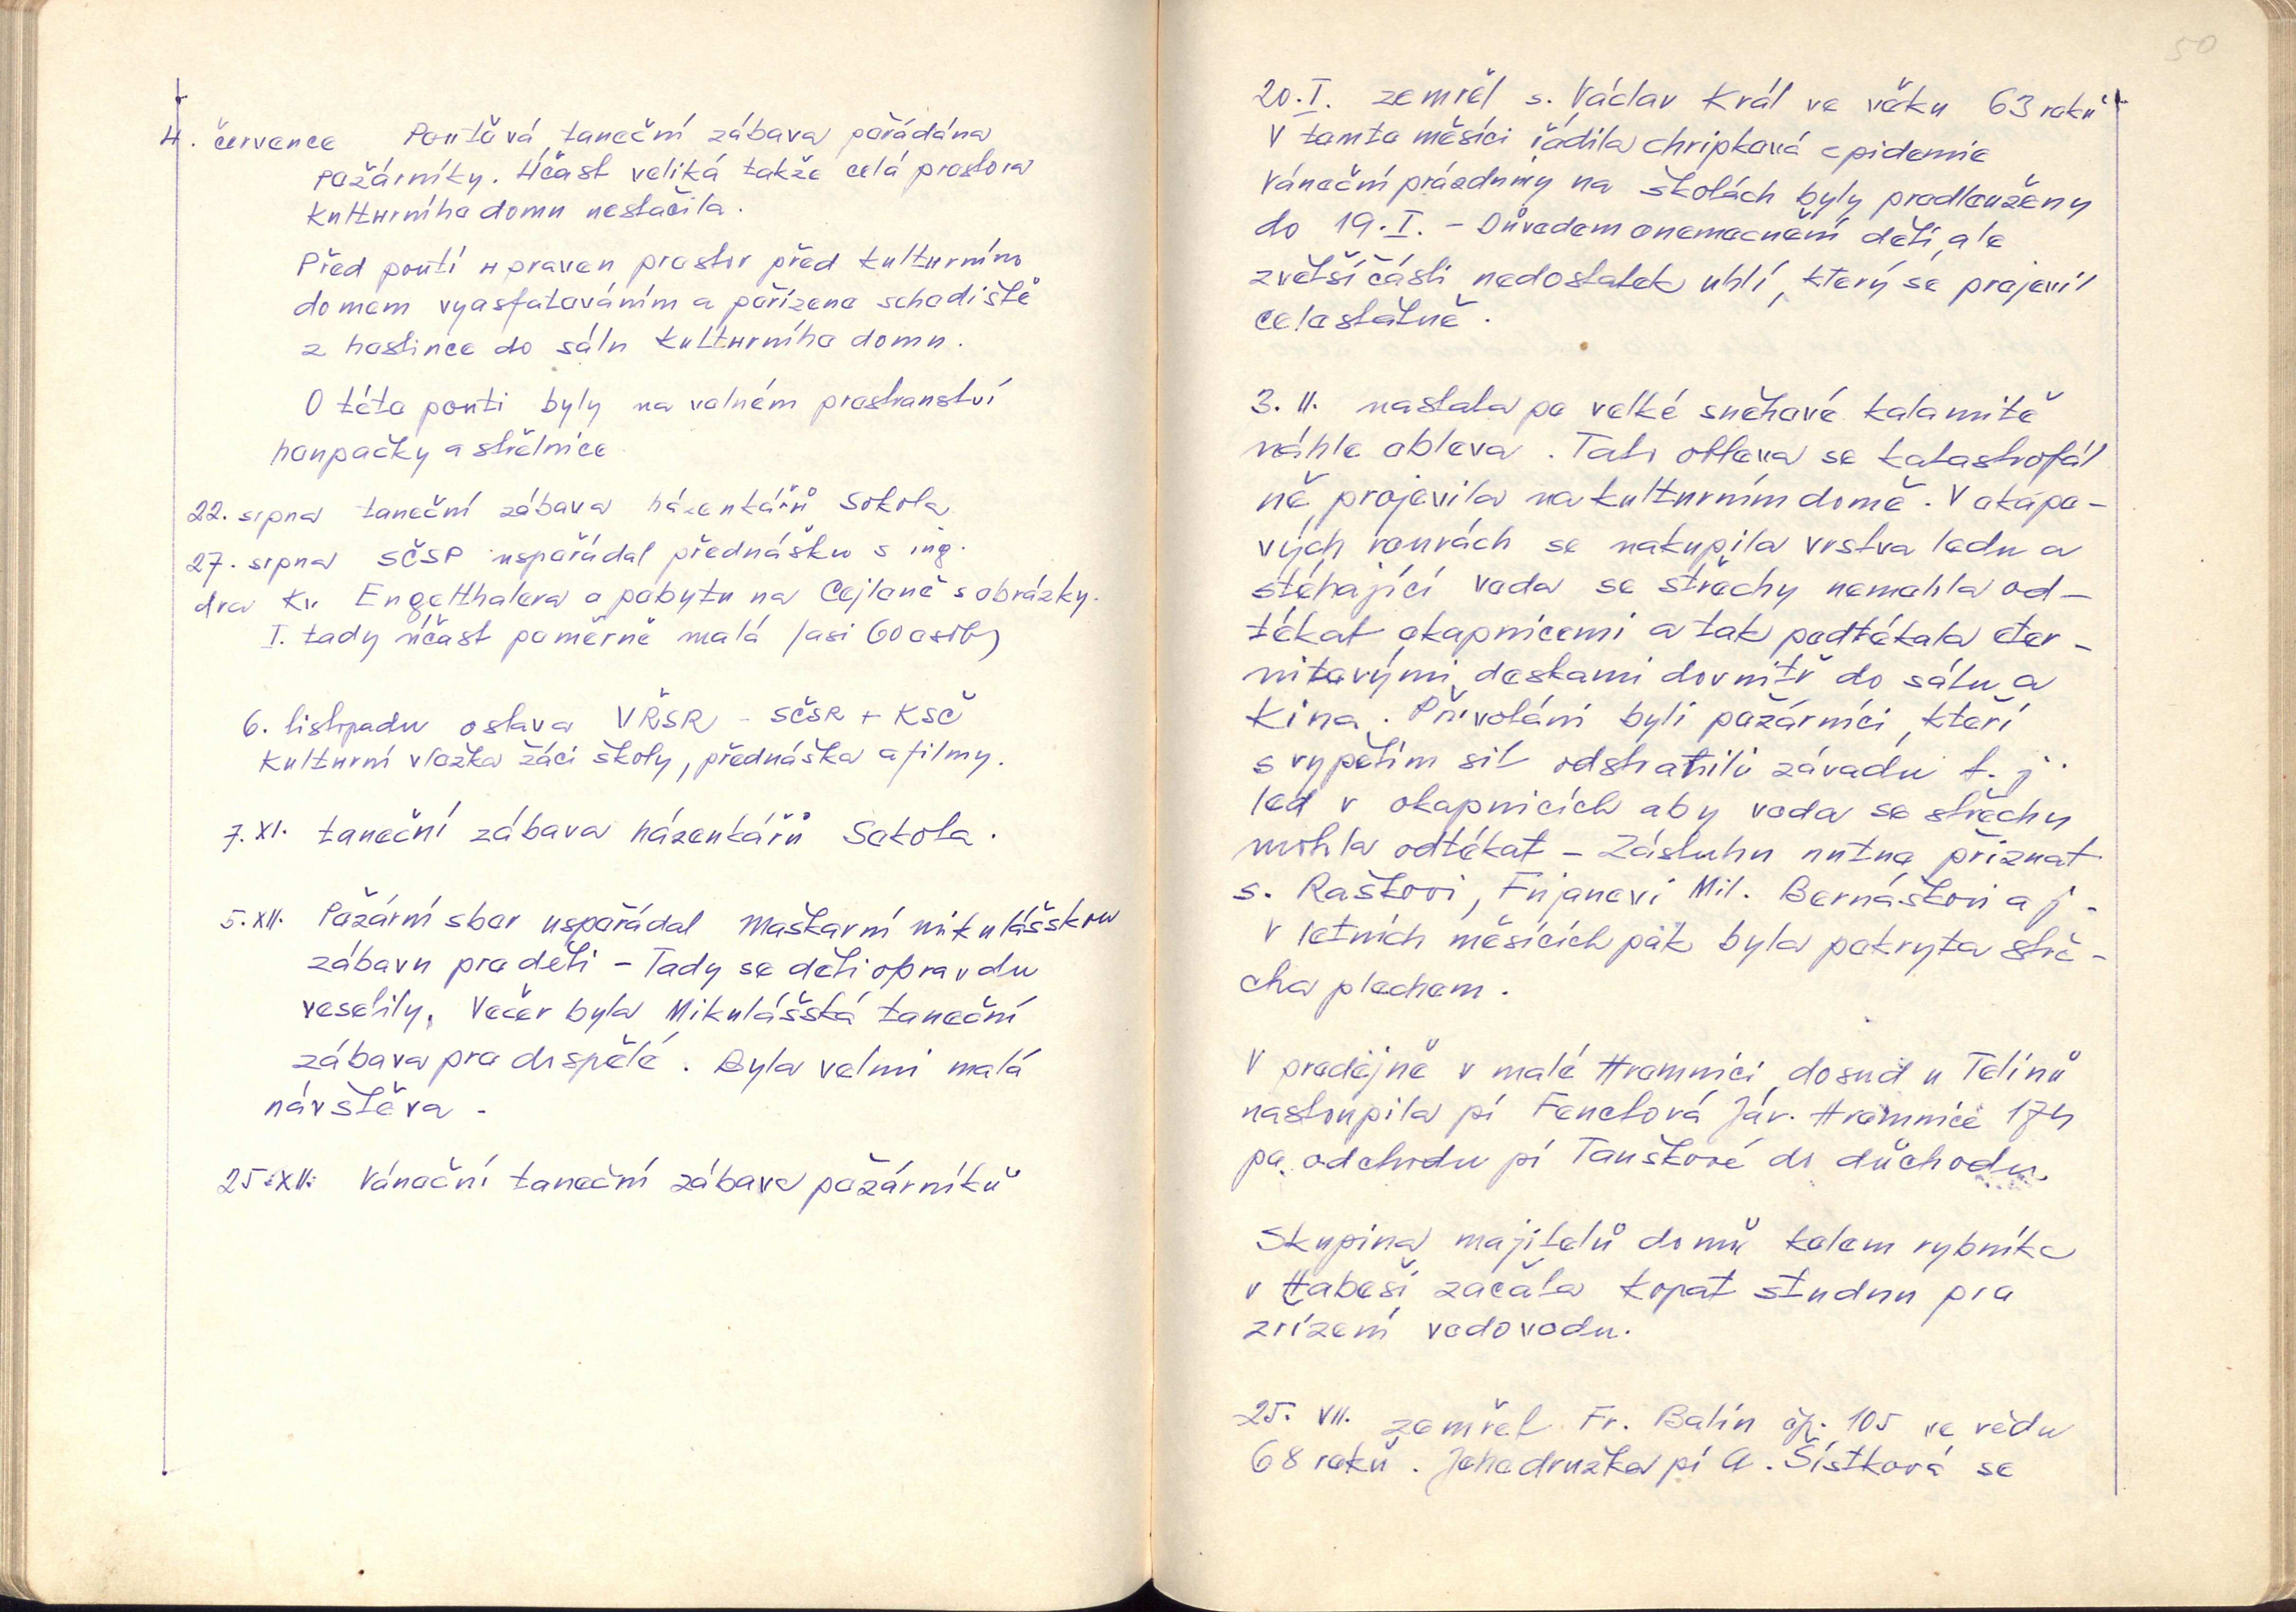 4. července Pouťová taneční zábava pořádána
požárníky. Účast veliká takže celá prostora
kulturního domu nestačila.
Před poutí upraven prostor před kulturním
domem vyasfatováním a pořízeno schodiště
z hostince do sálu kulturního domu.
O této pouti byly na volném prostranství
houpačky a střelnice
22. srpna taneční zábava házenkářů Sokola
27. srpna SČSP uspořádal přednášku s ing.
dra Kv. Engelthalera o pobytu na Cejloně s obrázky.
I. tady účast poměrně malá /asi 60 osob)
6. listopadu oslava VŘSR - SČSR + KSČ
Kulturní vložka žáci školy, přednáška a filmy.
7. XI. taneční zábava házenkářů Sokola.
5. XII. Požární sbor uspořádal Maškarní mikulášskou
zábavu pro děti - Tady se děti opravdu
veselily. Večer byla Mikulášská taneční
zábava pro dospělé. Byla velmi malá
návštěva -
25. XII. Vánoční taneční zábava požárníků
50
20. I. zemřel s. Václav Král ve věku 63 roků
V tomto měsíci řádila chřipková epidemie
Vánoční prázdniny na školách byly prodlouženy
do 19. I. - Důvodem onemocnění dětí, ale
z větší části nedostatek uhlí, který se projevil
celostátně.
3. II. nastala po velké sněhové kalamitě
náhle obleva. Tato obleva se katastrofál
ně projevila na kulturním domě. V okapo-
vých rourách se nakupila vrstva ledu a
stéhající voda se střechy nemohla od-
tékat okapnicemi a tak podtékala eter-
nitovými deskami dovnitř do sálu a
kina. Přivoláni byli požárníci, kteří
s vypětím sil odstranili závadu t. j.
led v okapnicích aby voda se střechy
mohla odtékat - Zásluhu nutno přiznat
s. Raškovi, Fujanovi Mil. Bernáškovi a j.
V letních měsících pak byla pokryta stře-
cha plechem.
V prodejně v malé Hromnici, dosud u Telínů
nastoupila pí Fenclová Jar. Hromnice 174
po odchodu pí Tauškové do důchodu
Skupina majitelů domů kolem rybníka
v Habeši začala kopat studnu pro
zřízení vodovodu.
25. VII. zemřel Fr. Balín čp. 105 ve vědu
68 roků. Jeho družka pí A. Šístková se